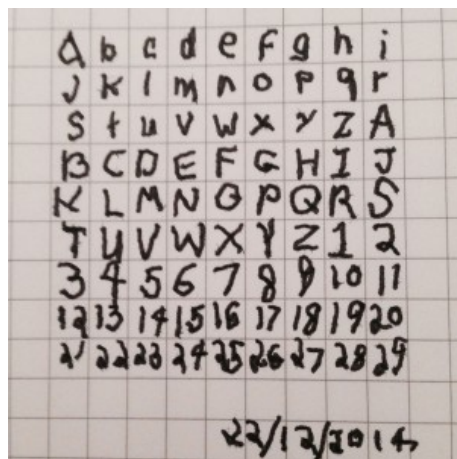 a b c d e f g h i
J K l m n o p q r
s t u v w x y z A
B C D E F G H I J
K L M N O P Q R S
T U V W X Y Z 1 2
3 4 5 6 7 8 9 10 11
12 13 14 15 16 17 18 19 20
21 22 23 24 25 26 27 28 29
22/12/2014